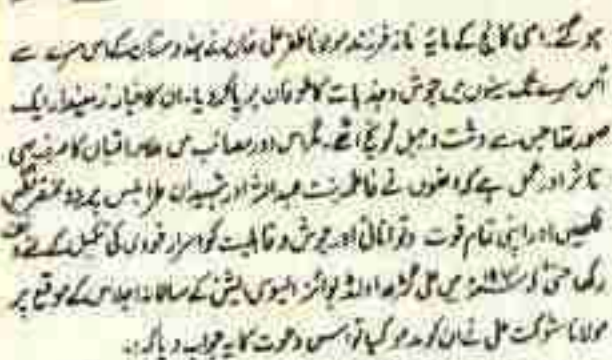 ہو گئے۔ اسی کالج کے مایۂ ناز فرزند مولانا ظفر علی خان نے ہندوستان کے اس سرے سے
اس سرے تک سینوں میں جوش و جذبات کا طوفان برپا کر دیا۔ ان کا اخبار زمیندار ایک
صور تھا جس سے دشت و جبل گونج اٹھے۔ مگر اس دور مصائب میں علامہ اقبال کا صرف یہی
تاثر اور عمل ہے کہ انھوں نے فاطمہ بنت عبداللہ اور شہیدان طرابلس پر دو مختصر نظمیں
لکھیں اور اپنی تمام قوت و توانائی اور جوش و قابلیت کو اسرار خودی کی تکمیل کے لئے وقف
رکھا حتیٰ کہ میں علی گڑھ اولڈ بوائز ایسوسی ایشن کے سالانہ اجلاس کے موقع پر
مولانا شوکت علی نے ان کو مدعو کیا تو اس دعوت کا یہ جواب دیا کہ:۔